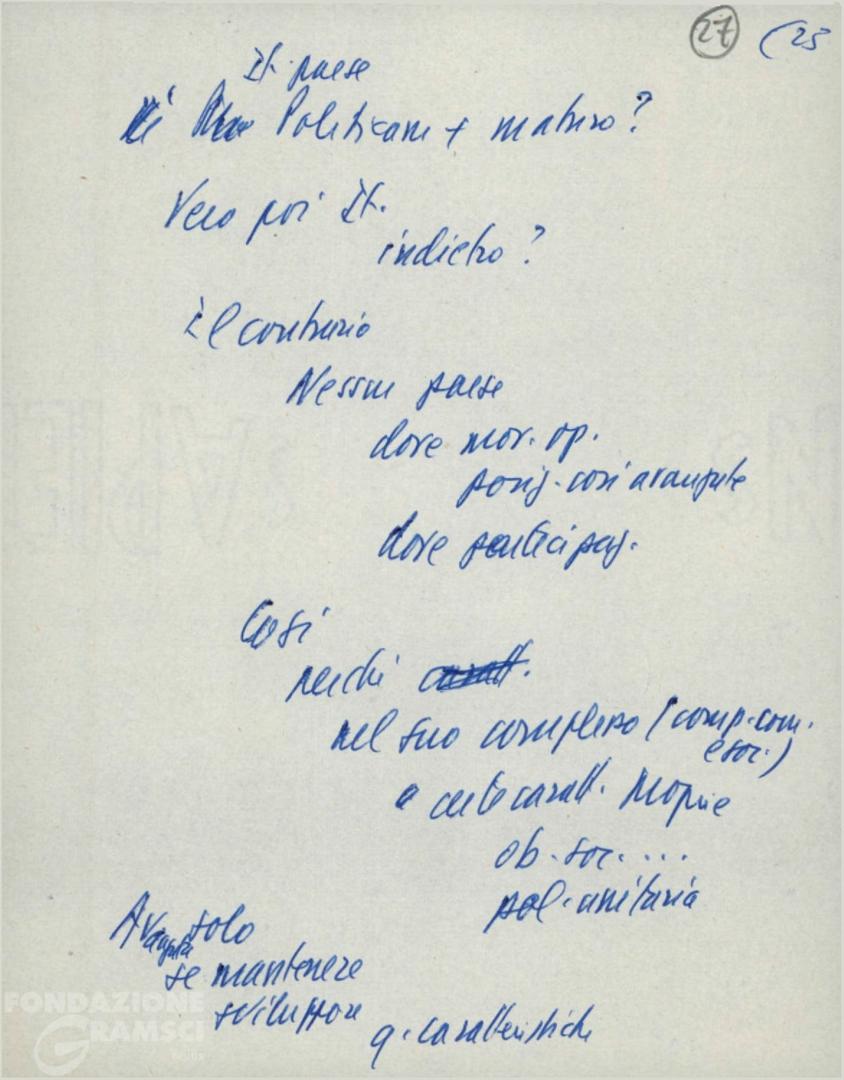 27 (25
It. paese
Politicam + maturo?
Vero poi It.
indietro?
Il contrario
Nessun paese
dove mov. op.
posiz. così avanzate
dove partecipaz.
Così
perché caratt.
nel suo complesso (comp. com.
e soc.)
a certe caratt. proprie
ob. soc. ....
pol. unitaria
Avanzata solo
se mantenere
sviluppare
q. caratteristiche
FONDAZIONE
GRAMSCI